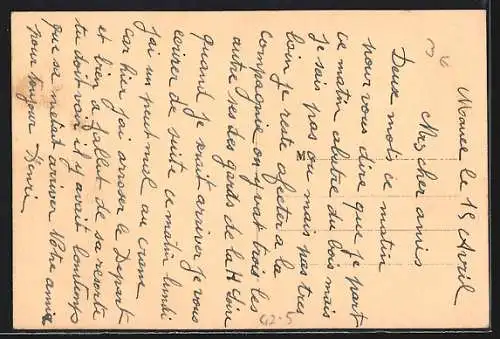 le 15 Avril
Mes cher amies
Deux mots ce matin
pour vous dire que je part
ce matin abatre du bois mais
je sais pas ou mais pas tres
loin je reste afecter a la
compagnie on y vat trois les
autre des gards de la Hte Loire
quand je serait arriver je vous
ecrirer de suite ce matin lundi
j'ai un peut mal au crane
car hier j'ai arroser le Depart
et bien a fallait de sa reserte
tu doit voir il y avait lontemps
que sa m'etait arriver Votre amie
pour toujour Henri
42-5